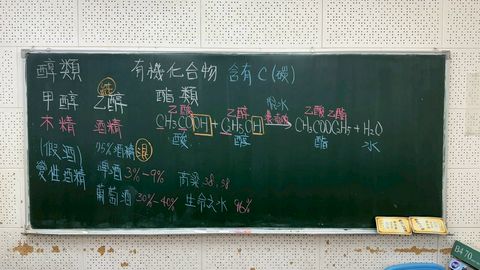 醇類 有機化合物 含有C(碳)
純
甲醇 乙醇 酯類
木精 酒精
乙酸 乙醇 脫水 乙酸乙酯
CH3COOH + C2H5OH → CH3COOC2H5 + H2O
酸 醇 酯 水
(假酒) 75%酒精 混
變性酒精 啤酒 3%-9% 高粱 38.58
葡萄酒 30%-40% 生命之水 96%
B470